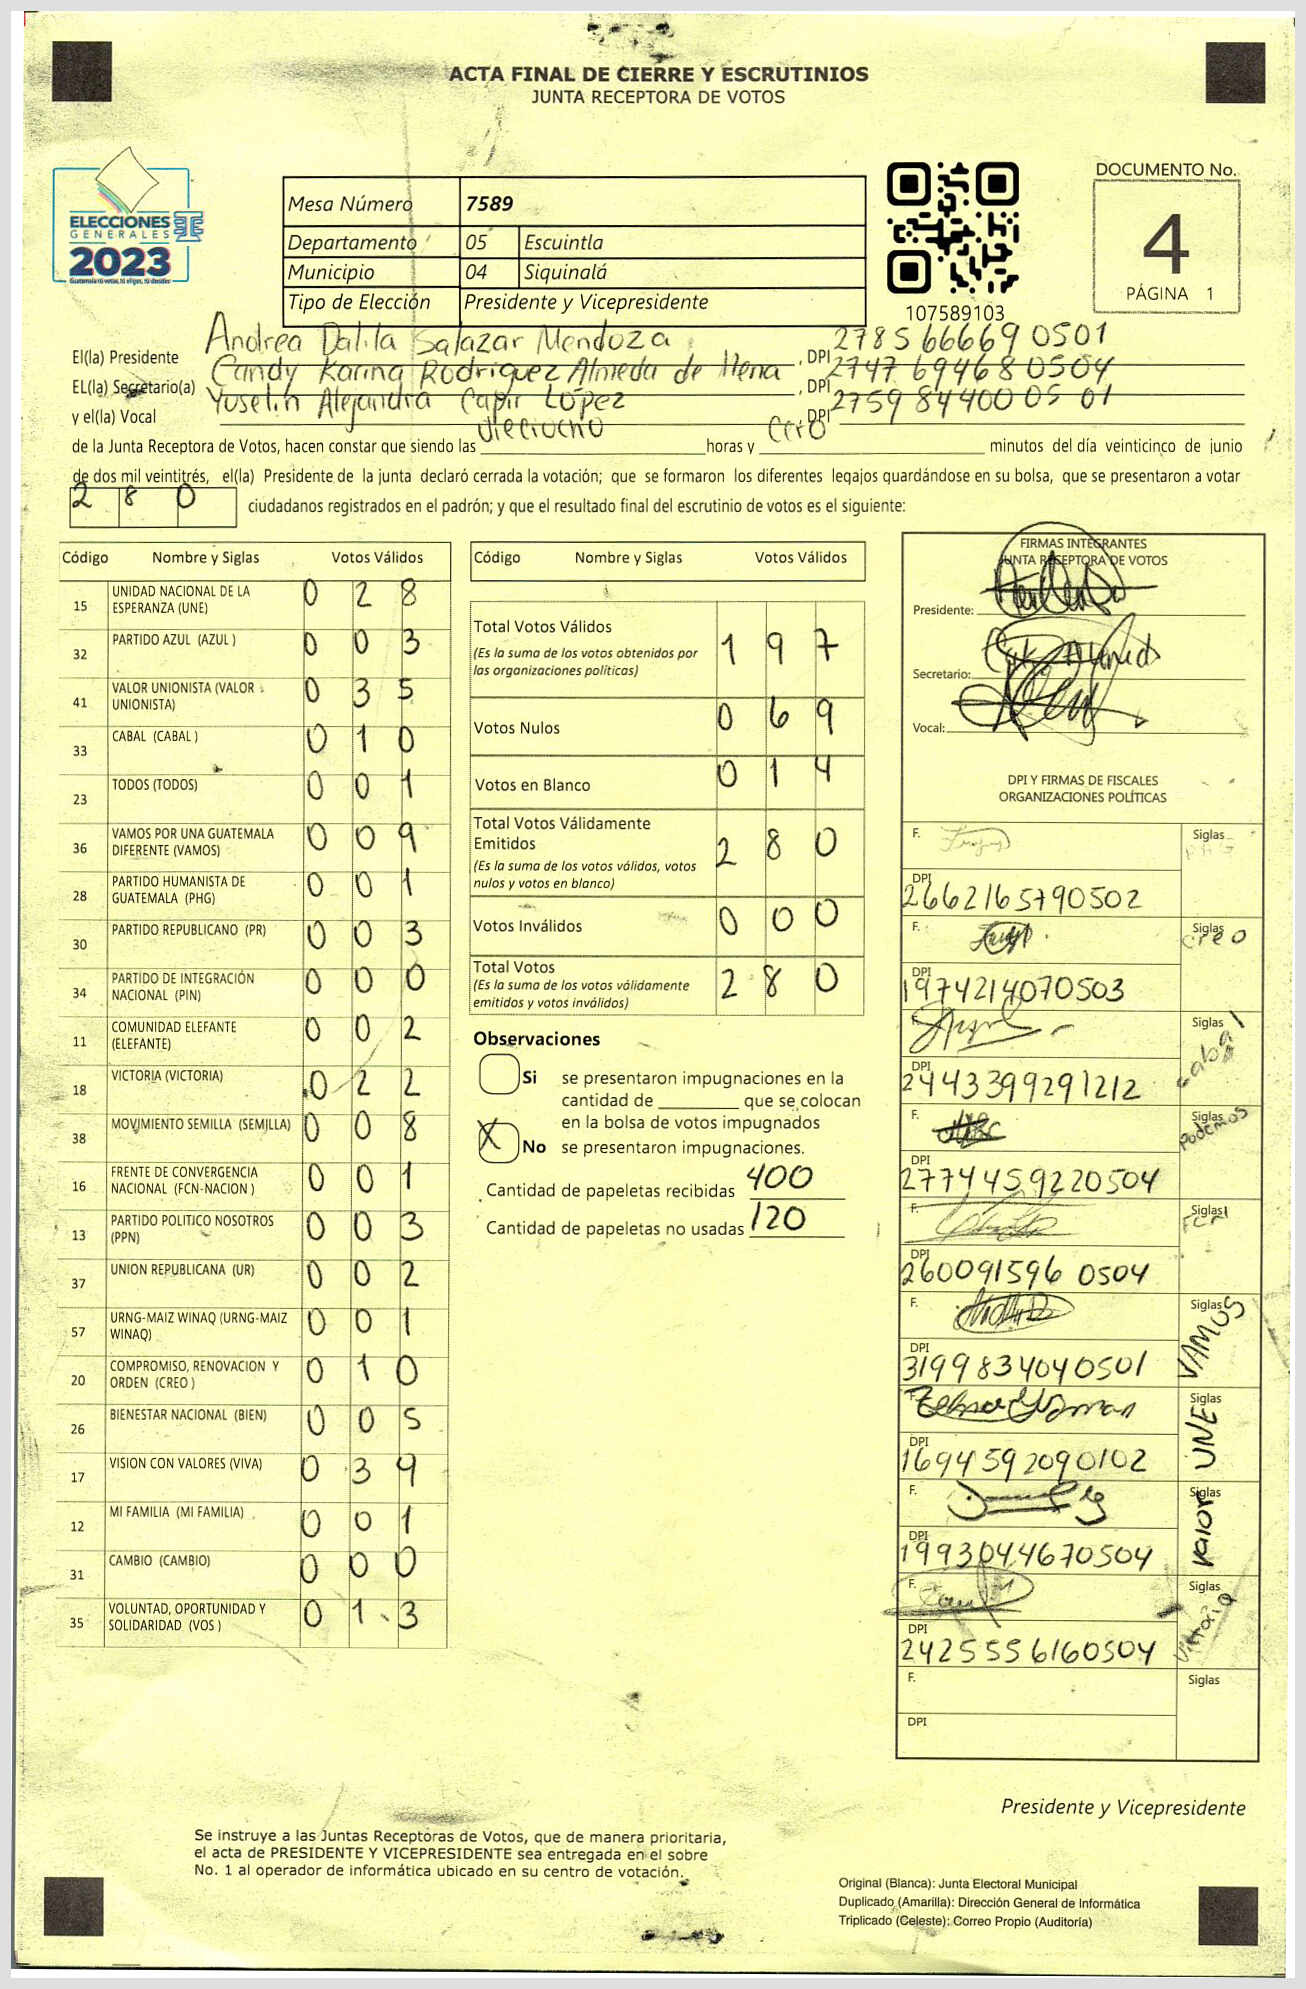 ACTA FINAL DE CIERRE Y ESCRUTINIOS
JUNTA RECEPTORA DE VOTOS
ELECCIONES
GENERALES
2023
Guatemala tú votas, tú eliges, tú decides
Mesa Número 7589
Departamento 05 Escuintla
Municipio 04 Siquinalá
Tipo de Elección Presidente y Vicepresidente
107589103
DOCUMENTO No.
4
PÁGINA 1
El(la) Presidente Andrea Dalila Salazar Mendoza, DPI 2785 66669 0501
EL(la) Secretario(a) Candy Karina Rodriguez Almeda de Mena, DPI 2747 69468 0504
y el(la) Vocal Yuselin Alejandra Capir López, DPI 2759 84400 05 01
de la Junta Receptora de Votos, hacen constar que siendo las dieciocho horas y cero minutos del día veinticinco de junio
de dos mil veintitrés, el(la) Presidente de la junta declaró cerrada la votación; que se formaron los diferentes legajos guardándose en su bolsa, que se presentaron a votar
2 8 0 ciudadanos registrados en el padrón; y que el resultado final del escrutinio de votos es el siguiente:
Código Nombre y Siglas Votos Válidos
15 UNIDAD NACIONAL DE LA ESPERANZA (UNE) 0 2 8
32 PARTIDO AZUL (AZUL ) 0 0 3
41 VALOR UNIONISTA (VALOR UNIONISTA) 0 3 5
33 CABAL (CABAL ) 0 1 0
23 TODOS (TODOS) 0 0 1
36 VAMOS POR UNA GUATEMALA DIFERENTE (VAMOS) 0 0 9
28 PARTIDO HUMANISTA DE GUATEMALA (PHG) 0 0 1
30 PARTIDO REPUBLICANO (PR) 0 0 3
34 PARTIDO DE INTEGRACIÓN NACIONAL (PIN) 0 0 0
11 COMUNIDAD ELEFANTE (ELEFANTE) 0 0 2
18 VICTORIA (VICTORIA) 0 2 2
38 MOVIMIENTO SEMILLA (SEMILLA) 0 0 8
16 FRENTE DE CONVERGENCIA NACIONAL (FCN-NACION ) 0 0 1
13 PARTIDO POLITICO NOSOTROS (PPN) 0 0 3
37 UNION REPUBLICANA (UR) 0 0 2
57 URNG-MAIZ WINAQ (URNG-MAIZ WINAQ) 0 0 1
20 COMPROMISO, RENOVACION Y ORDEN (CREO ) 0 1 0
26 BIENESTAR NACIONAL (BIEN) 0 0 5
17 VISION CON VALORES (VIVA) 0 3 9
12 MI FAMILIA (MI FAMILIA) 0 0 1
31 CAMBIO (CAMBIO) 0 0 0
35 VOLUNTAD, OPORTUNIDAD Y SOLIDARIDAD (VOS ) 0 1 3
Código Nombre y Siglas Votos Válidos
Total Votos Válidos 1 9 7
(Es la suma de los votos obtenidos por
las organizaciones políticas)
Votos Nulos 0 6 9
Votos en Blanco 0 1 4
Total Votos Válidamente
Emitidos 2 8 0
(Es la suma de los votos válidos, votos
nulos y votos en blanco)
Votos Inválidos 0 0 0
Total Votos 2 8 0
(Es la suma de los votos válidamente
emitidos y votos inválidos)
Observaciones
Si se presentaron impugnaciones en la
cantidad de que se colocan
en la bolsa de votos impugnados
X No se presentaron impugnaciones.
Cantidad de papeletas recibidas 400
Cantidad de papeletas no usadas 120
FIRMAS INTEGRANTES
JUNTA RECEPTORA DE VOTOS
Presidente:
Secretario:
Vocal:
DPI Y FIRMAS DE FISCALES
ORGANIZACIONES POLÍTICAS
F. Siglas PHG
DPI 2662165790502
F. Siglas creo
DPI 1974214070503
F. Siglas cabal
DPI 2443399291212
F. Siglas Podemos
DPI 2774459220504
F. Siglas FCN
DPI 260091596 0504
F. Siglas VAMOS
DPI 3199834040501
F. Siglas UNE
DPI 1694592090102
F. Siglas Valor
DPI 1993044670504
F. Siglas Victoria
DPI 2425556160504
F. Siglas
DPI
Presidente y Vicepresidente
Se instruye a las Juntas Receptoras de Votos, que de manera prioritaria,
el acta de PRESIDENTE Y VICEPRESIDENTE sea entregada en el sobre
No. 1 al operador de informática ubicado en su centro de votación.
Original (Blanca): Junta Electoral Municipal
Duplicado (Amarilla): Dirección General de Informática
Triplicado (Celeste): Correo Propio (Auditoría)